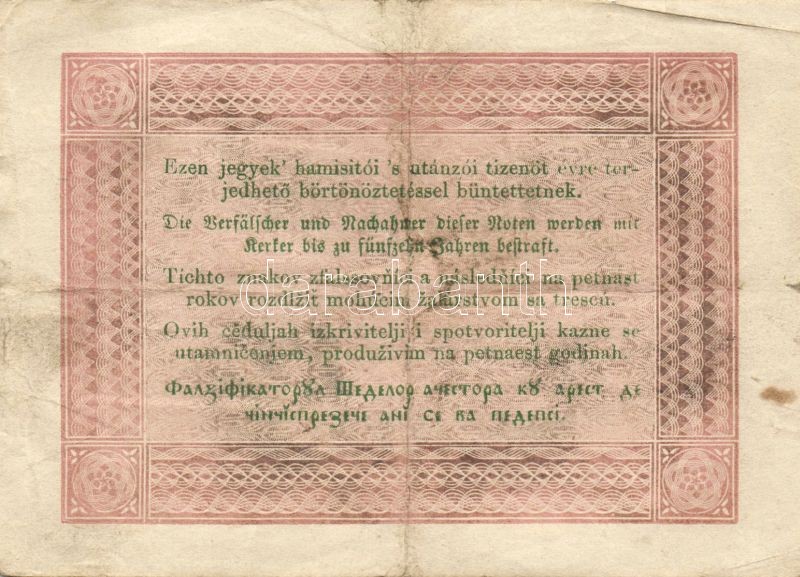 Ezen jegyek' hamisitói 's utánzói tizenöt évre ter-
jedhető börtönöztetéssel büntettetnek.
Die Verfälscher und Nachahmer dieser Noten werden mit
Kerker bis zu fünfzehn Jahren bestraft.
Tichto znakov zfalšovňíci a následňíci na petnast
rokov rozdlžit žalárstvom sa trescú.
Ovih cěduljah izkrivitelji i spotvoritelji kazne se
utamničenjem, produživim na petnaest godinah.
Фалзіфікаторул Шеделор ачестора ку арест де
чінчіспрезече ані се ва педепсі.
darabanth